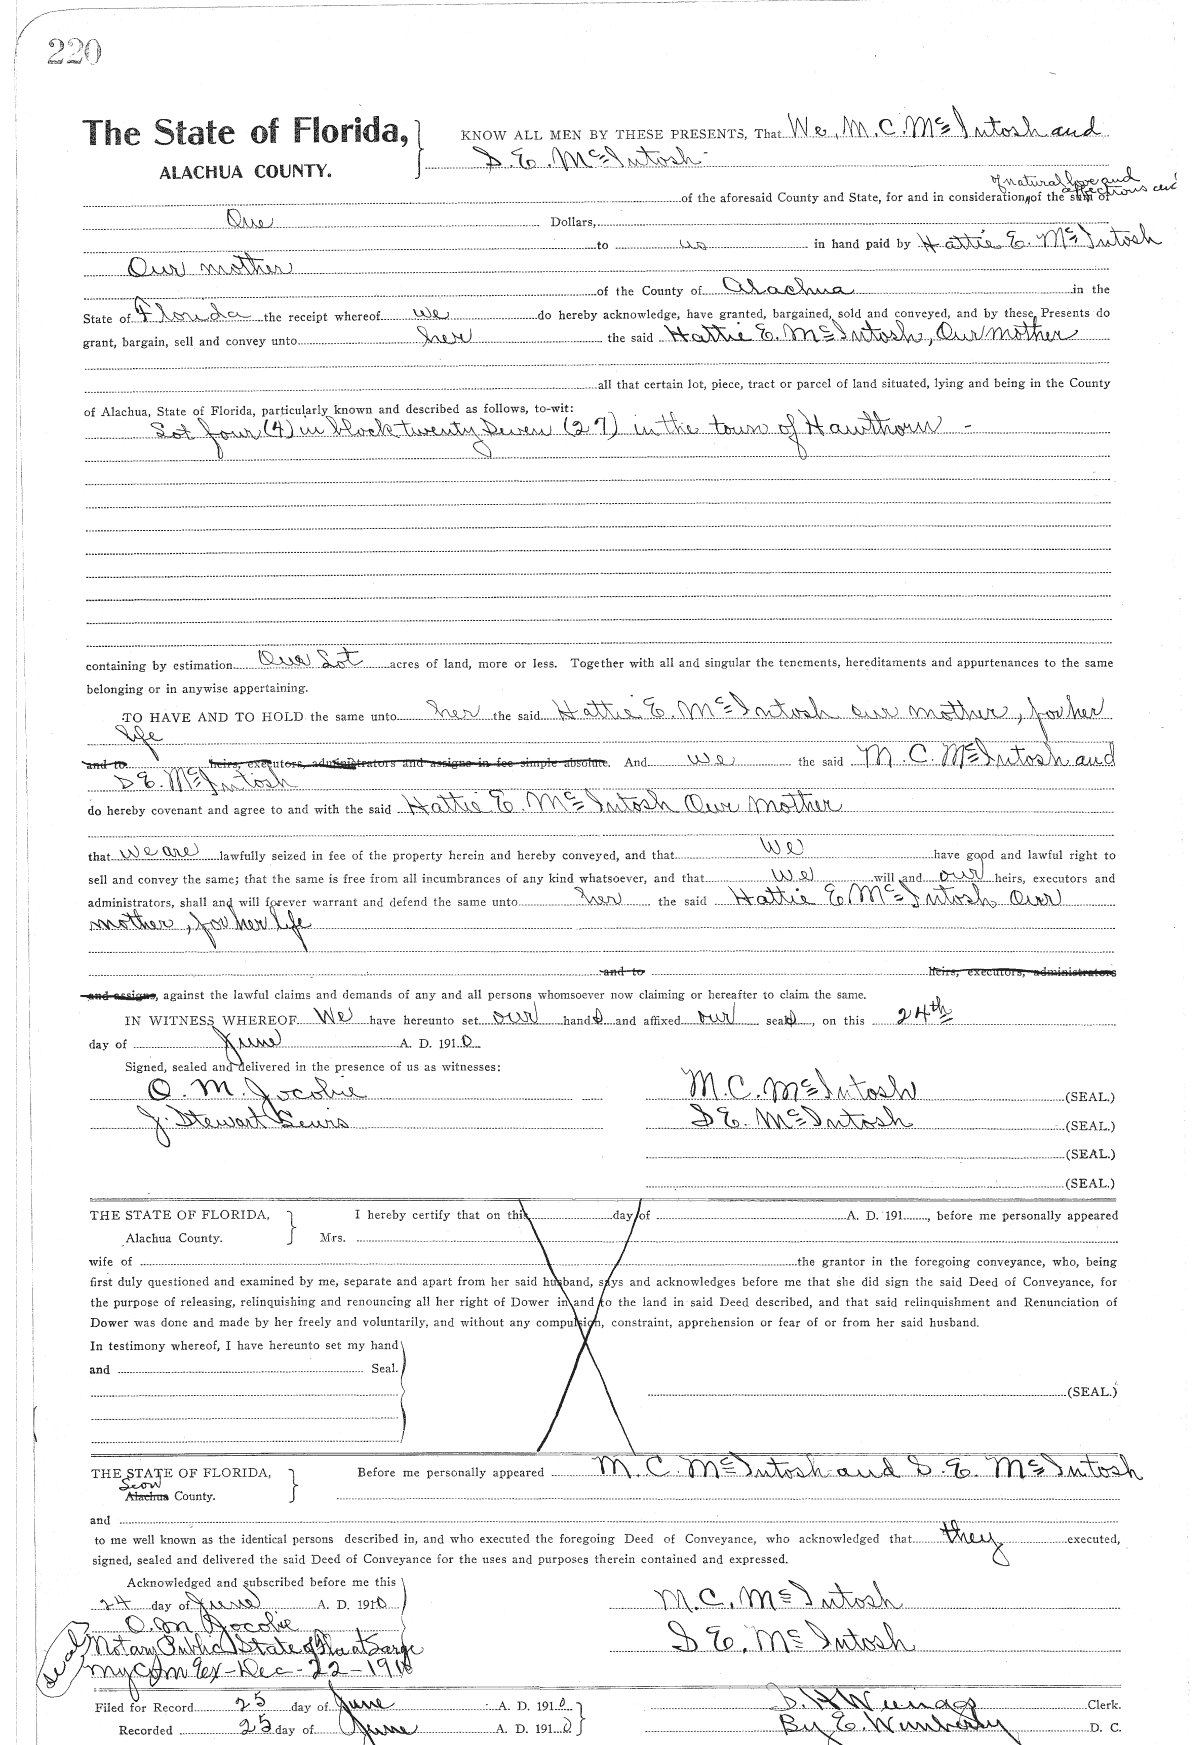 220
The State of Florida,
ALACHUA COUNTY.
KNOW ALL MEN BY THESE PRESENTS, That We, M. C. McIntosh and
S. E. McIntosh
of natural love and
affections and
of the aforesaid County and State, for and in consideration of the sum of
One Dollars,
to us in hand paid by Hattie E. McIntosh
Our mother
of the County of Alachua in the
State of Florida the receipt whereof we do hereby acknowledge, have granted, bargained, sold and conveyed, and by these Presents do
grant, bargain, sell and convey unto her the said Hattie E. McIntosh, Our mother
all that certain lot, piece, tract or parcel of land situated, lying and being in the County
of Alachua, State of Florida, particularly known and described as follows, to-wit:
Lot four (4) in block twenty Seven (27) in the town of Hawthorn -
containing by estimation One Lot acres of land, more or less. Together with all and singular the tenements, hereditaments and appurtenances to the same
belonging or in anywise appertaining.
TO HAVE AND TO HOLD the same unto her the said Hattie E. McIntosh our mother, for her
life
and to heirs, executors, administrators and assigns in fee simple absolute. And we the said M. C. McIntosh and
S E. McIntosh
do hereby covenant and agree to and with the said Hattie E. McIntosh Our Mother
that we are lawfully seized in fee of the property herein and hereby conveyed, and that We have good and lawful right to
sell and convey the same; that the same is free from all incumbrances of any kind whatsoever, and that we will and our heirs, executors and
administrators, shall and will forever warrant and defend the same unto her the said Hattie E McIntosh Our
mother, for her life
and to heirs, executors, administrators
and assigns, against the lawful claims and demands of any and all persons whomsoever now claiming or hereafter to claim the same.
IN WITNESS WHEREOF We have hereunto set our hands and affixed our seals, on this 24th
day of June A. D. 1910
Signed, sealed and delivered in the presence of us as witnesses:
O. M. Jocobie M. C. McIntosh (SEAL.)
J. Stewart Lewis S E. McIntosh (SEAL.)
(SEAL.)
(SEAL.)
THE STATE OF FLORIDA, I hereby certify that on this day of A. D. 191 , before me personally appeared
Alachua County. Mrs.
wife of the grantor in the foregoing conveyance, who, being
first duly questioned and examined by me, separate and apart from her said husband, says and acknowledges before me that she did sign the said Deed of Conveyance, for
the purpose of releasing, relinquishing and renouncing all her right of Dower in and to the land in said Deed described, and that said relinquishment and Renunciation of
Dower was done and made by her freely and voluntarily, and without any compulsion, constraint, apprehension or fear of or from her said husband.
In testimony whereof, I have hereunto set my hand
and Seal.
(SEAL.)
THE STATE OF FLORIDA, Before me personally appeared M. C. McIntosh and S. E. McIntosh
Leon
Alachua County.
and
to me well known as the identical persons described in, and who executed the foregoing Deed of Conveyance, who acknowledged that they executed,
signed, sealed and delivered the said Deed of Conveyance for the uses and purposes therein contained and expressed.
Acknowledged and subscribed before me this
24 day of June A. D. 1910 M. C. McIntosh
O. M Jocobie
seal Notary Public State of Fla at Large S E. McIntosh
My Com Ex - Dec - 22 - 1910
Filed for Record 25 day of June A. D. 1910 Clerk.
Recorded 25 day of June A. D. 1910 By E. Wimberly D. C.